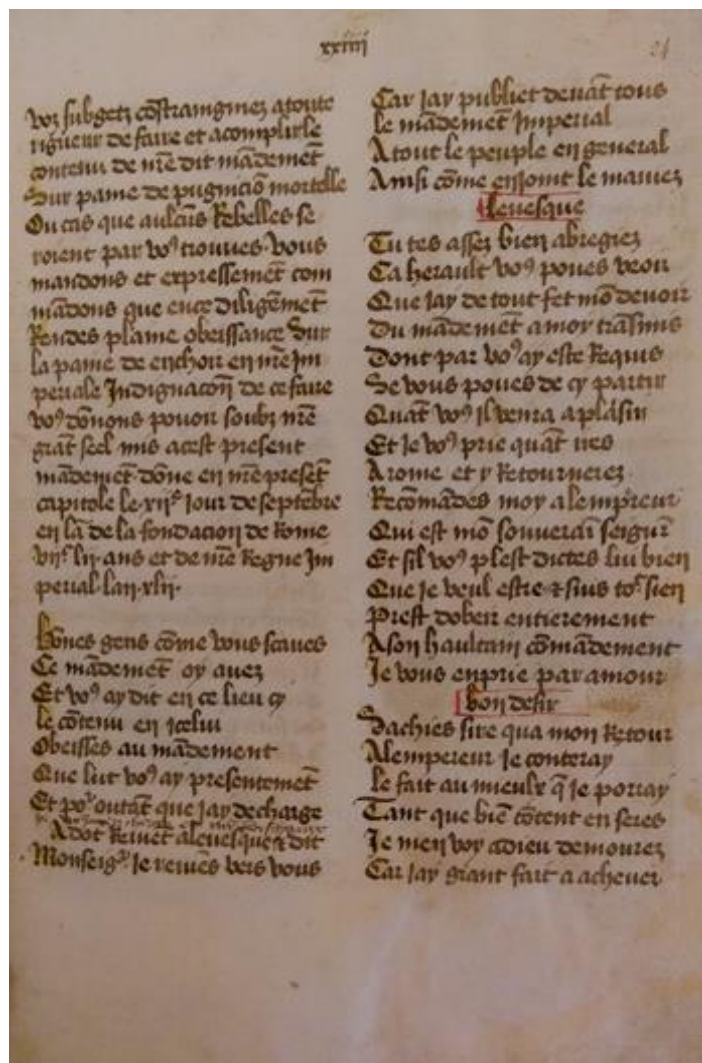 xxiiii
24
voz subgetz cōstraingniez a toute
rigueur de faire et acomplir le
contenu de nr̄e dit mādemēt
Sur paine de pugniciō mortelle
Ou cas que aulcūs Rebelles se
roient par voꝰ trouves vous
mandons et expressemēt com
mādons que en ce diligēmēt
Rendes plaine obeissance Sur
la paine de encheir en nr̄e Im
periale Indignacōn de ce faire
voꝰ dōnons povoir soubz nr̄e
grāt seel mis a cest present
mādemēt dōne en nr̄e presēt
capitole le xiiᵉ Jour de septēbre
en lā de la fondacion de Rome
viiᶜ lii ans et de nr̄e Regne Im
perial lan xlii
Bōnes gens cōme vous scaves
Ce mādemēt oy avez
Et voꝰ ay dit en ce lieu cy
le cōtenu en icelui
Obeisses au mādement
Que lut voꝰ ay presentemēt
Et poʳ outāt que jay de charge
Adōt Reviēt a levesque et dit
Monseigʳ Je reviēs vers vous
Car jay publiet devāt tous
le mādemēt Imperial
A tout le peuple en general
Ainsi cōme enjoint le maviez
levesque
Tu tes assez bien abregiez
Ca herault voꝰ poves veoir
Que jay de tout fet mō devoir
Du mādemēt a moy trāsmis
Dont par voꝰ ay este Requis
Se vous poves de cy partir
Quāt voꝰ il venra a plaisir
Et Je voꝰ prie quāt ires
A rome et y Retournerez
Recōmādes moy a lempereur
Qui est mō souverai seigūr
Et sil voꝰ plest dictes lui bien
Que je veul estre ⁊ sius toʳ sien
Prest dobeir entierement
A son haultain cōmādement
Je vous en prie par amour
bon desir
Sachies sire qua mon Retour
A lempereur Je conteray
le fait au mieulx q̄ Je porray
Tant que biē cōtent en seres
Je men voy a dieu demourez
Car jay grant fait a achever